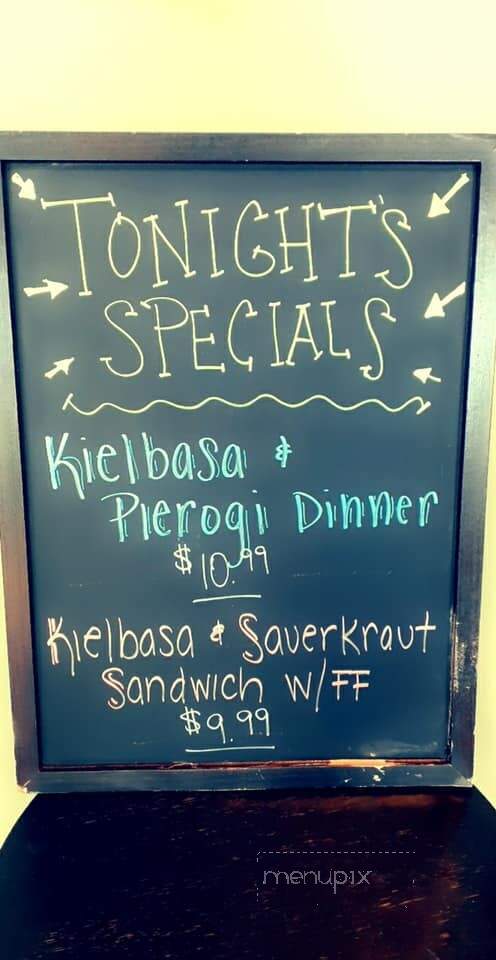 TONIGHT'S
SPECIALS
Kielbasa &
Pierogi Dinner
$10.99
Kielbasa & Sauerkraut
Sandwich w/FF
$9.99
menupix